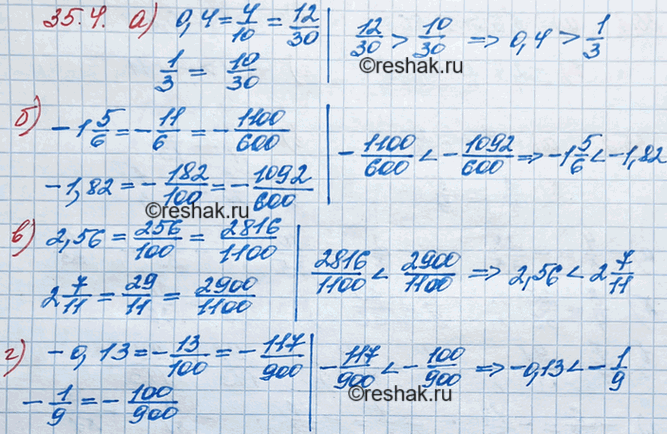 35.4. а) 0,4 = 4/10 = 12/30 | 12/30 > 10/30 => 0,4 > 1/3
1/3 = 10/30
©reshak.ru
б) -1 5/6 = -11/6 = -1100/600 | -1100/600 < -1092/600 => -1 5/6 < -1,82
-1,82 = -182/100 = -1092/600
©reshak.ru
в) 2,56 = 256/100 = 2816/1100 | 2816/1100 < 2900/1100 => 2,56 < 2 7/11
2 7/11 = 29/11 = 2900/1100
г) -0,13 = -13/100 = -117/900 | -117/900 < -100/900 => -0,13 < -1/9
-1/9 = -100/900
©reshak.ru